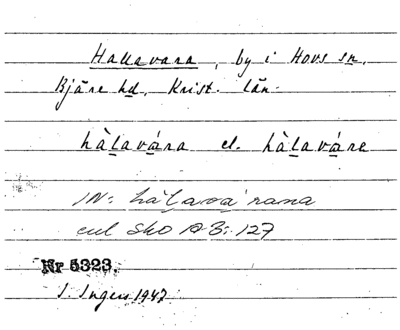 Hallavara, by i Hovs sn,
Bjäre hd. Krist. län.
hàlavára el. hàlaváre
IN: hàlavá'rana
enl Sko AB: 127
Nr 5323.
I. Ingers 1942